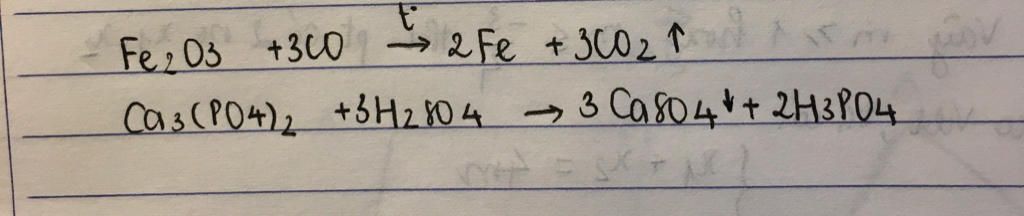 t°
Fe2O3 +3CO → 2Fe + 3CO2 ↑
Ca3(PO4)2 +3H2SO4 → 3 CaSO4↓ + 2H3PO4